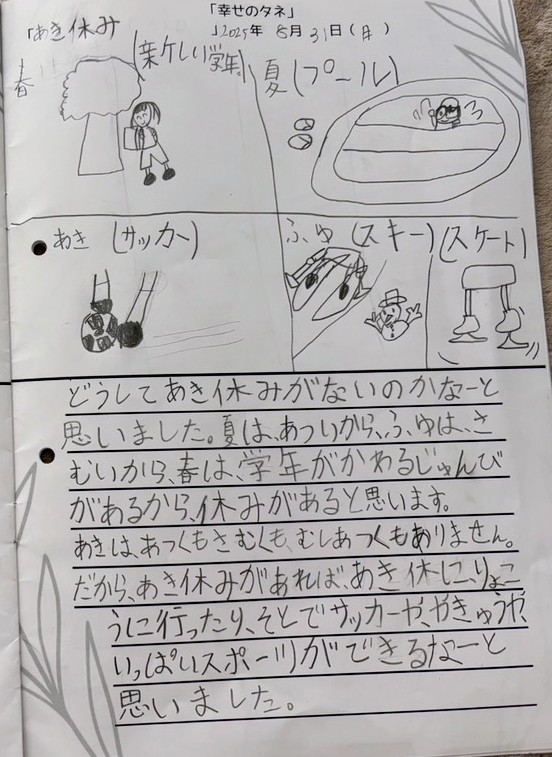 「幸せのタネ」
「あき休み
」2025年 8月31日(日)
春
(新しい学年)
夏(プール)
あき (サッカー)
ふゆ (スキー)(スケート)
どうしてあき休みがないのかなーと
思いました。夏は、あついから、ふゆは、さ
むいから、春は、学年がかわるじゅんび
があるから、休みがあると思います。
あきは、あつくもさむくも、むしあつくもありません。
だから、あき休みがあれば、あき休に、りょこ
うに行ったり、そとでサッカーや、やきゅうや、
いっぱいスポーツができるなーと
思いました。